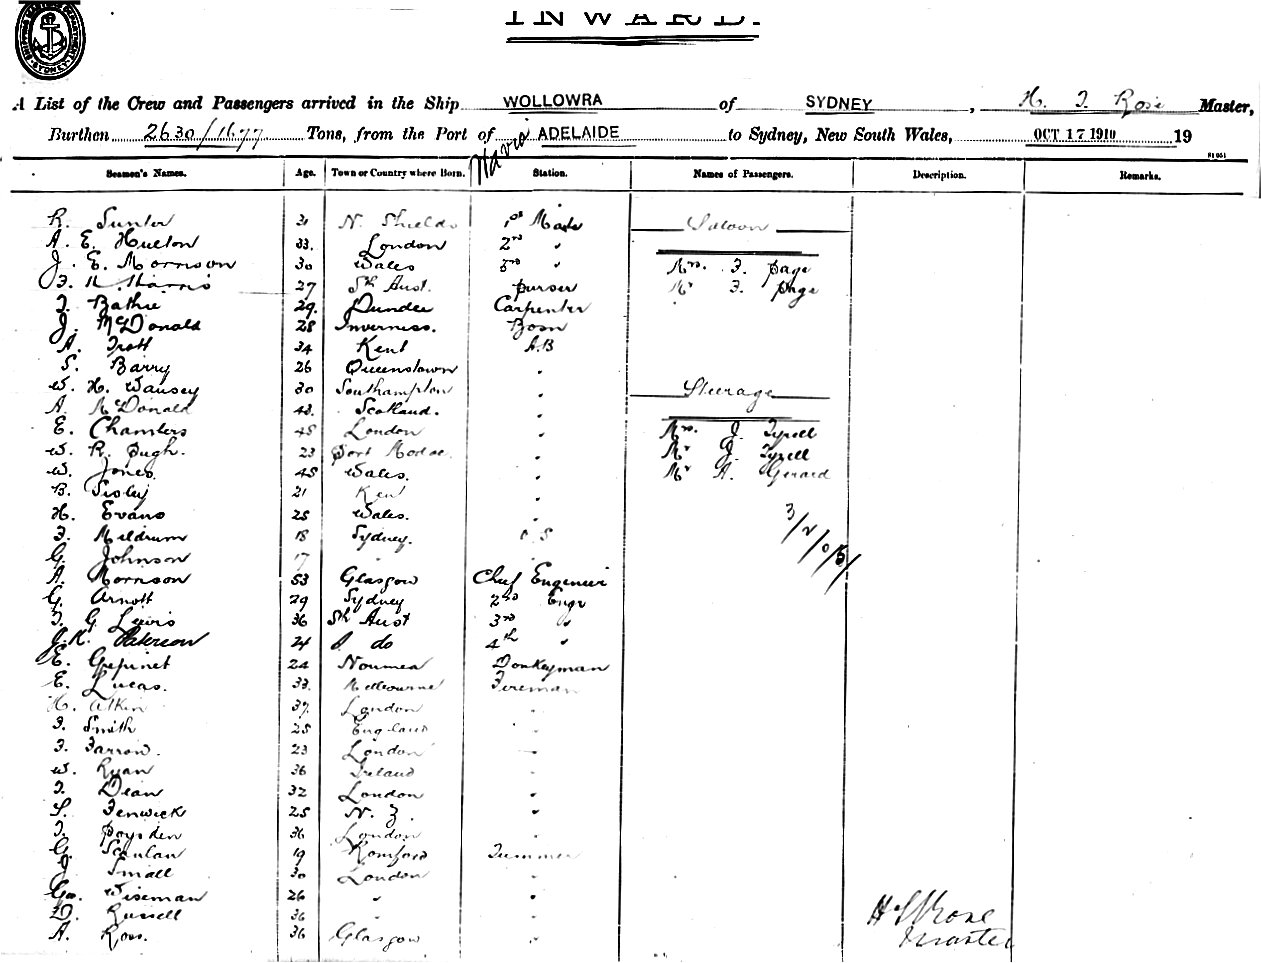 SHIPPING MASTERS DEPARTMENT SYDNEY
INWARD.
A List of the Crew and Passengers arrived in the Ship WOLLOWRA of SYDNEY, H. J. Rose Master,
Burthen 2630/1677 Tons, from the Port of ADELAIDE to Sydney, New South Wales, OCT 17 1910 19
Seamen's Names. Age. Town or Country where Born. Station. Names of Passengers. Description. Remarks.
R. Sunter 31 N. Shields 1st Mate Saloon
A. E. Hulton 33. London 2nd "
J. E. Morrison 30 Wales 3rd " Mrs. F. Page
F. Harris 27 Sth Aust. Purser Mr F. Page
J. Bathie 29. Dundee Carpenter
J. McDonald 28 Inverness. Bosn
A. Trott 34 Kent A.B
S. Barry 26 Queenstown "
W. H. Wansey 30 Southampton " Steerage
A. McDonald 43. Scotland. "
E. Chambers 45 London " Mrs. J. Tyrell
W. R. Pugh. 23 Port " Mr J. Tyrell
W. Jones 45 Wales. " Mr A. Gerard
B. Sisley 21 Kent "
H. Evans 25 Wales. " 3/2/0/5/
F. Meldrum 18 Sydney. O.S
G. Johnson 17 "
A. Morrison 53 Glasgow Chief Engineer
G. Arnott 29 Sydney 2nd Engr
T. G. Lewis 36 Sth Aust 3rd "
J. K. Paterson 24 do 4th "
E. 24 Noumea Donkeyman
E. Lucas. 33. Melbourne Fireman
H. Atkin 37. London "
F. Smith 25 England "
F. Farron. 23 London "
W. Ryan 36 Ireland "
J. Dean 32 London "
S. Fenwick 25 N. Z. "
J. Boysden 36 London "
G. Scanlan 19 Romford Trimmer
J. Small 30 London
Geo. Wiseman 26 " "
D. Russell 36 " " H J Rose
A. Ross. 36 Glasgow " Master